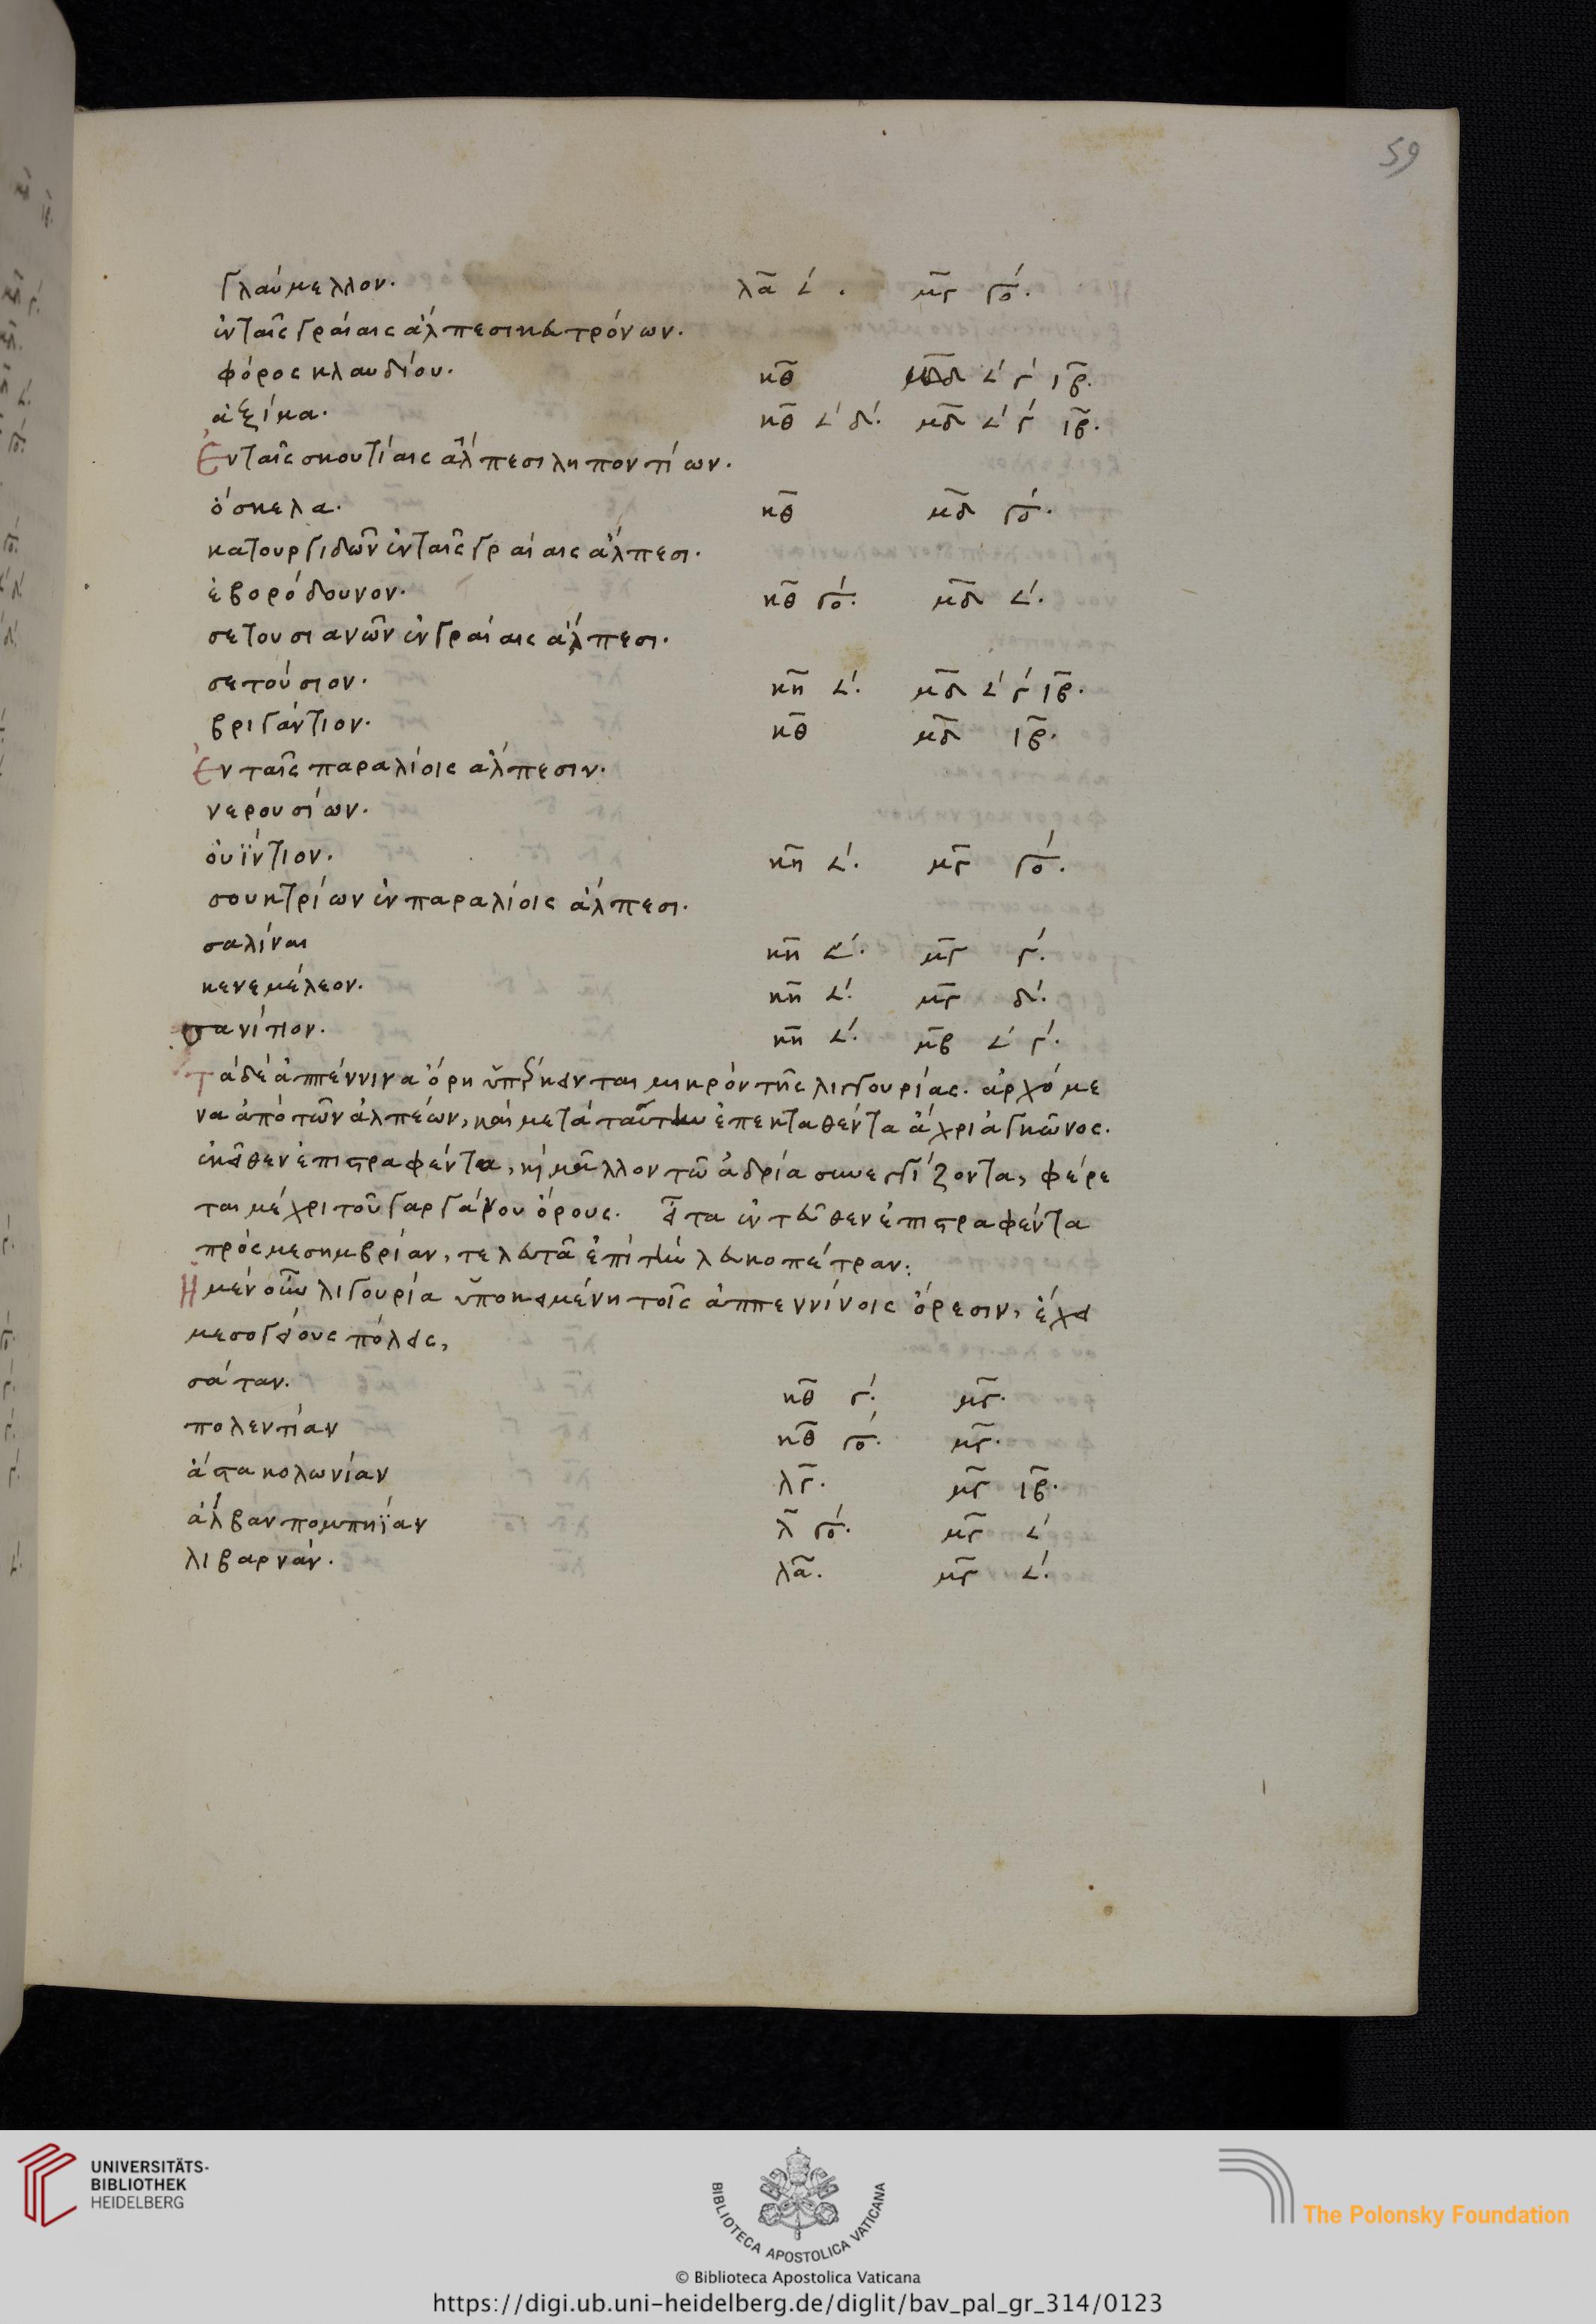 59
γλαύμελλον. λᾱ 𐅵΄. μ̄γ γο΄.
ἐν ταῖς γραίαις ἄλπεσι κευτρόνων.
φόρος κλαυδίου. κ̄θ μ̄δ 𐅵΄ γ΄ ιβ̄.
ἀξίμα. κ̄θ 𐅵΄ δ΄. μ̄δ 𐅵΄ γ΄ ιβ̄.
Ἐν ταῖς σκουτίαις ἄλπεσι ληποντίων.
ὄσκελα. κ̄θ μ̄δ γο΄.
κατουργιδῶν ἐν ταῖς γραίαις ἄλπεσι.
ἐβορόδουνον. κ̄θ γο΄. μ̄δ 𐅵΄.
σετουσιανῶν ἐν γραίαις ἄλπεσι.
σετούσιον. κ̄η 𐅵΄. μ̄δ 𐅵΄ γ΄ ιβ̄.
βριγάντιον. κ̄θ μ̄δ ιβ̄.
Ἐν ταῖς παραλίοις ἄλπεσιν.
νερουσίων.
ὀυΐντιον. κ̄η 𐅵΄. μ̄γ γο΄.
σουκτρίων ἐν παραλίοις ἄλπεσι.
σαλίναι κ̄η 𐅵΄. μ̄γ γ΄.
κενεμέλεον. κ̄η 𐅵΄. μ̄γ δ΄.
σανίτιον. κ̄η 𐅵΄. μ̄β 𐅵΄ γ΄.
Τὰ δὲ ἀπέννινα ὄρη ὑπέρκεινται μικρὸν τῆς λιγγουρίας. ἀρχόμε
να ἀπὸ τῶν ἀλπέων, καὶ μετὰ ταύτην ἐπεκταθέντα ἄχρι ἀγκῶνος.
ἐκεῖθεν ἐπιστραφέντα, καὶ μᾶλλον τῶ ἀδρία συνεγγίζοντα, φέρε
ται μέχρι τοῦ γαργάνου ὄρους. εἶτα ἐντεῦθεν ἐπιστραφέντα
πρὸς μεσημβρίαν, τελευτᾶ ἐπὶ τὴν λευκοπέτραν:
Ἡ μὲν οὖν λιγουρία ὑποκειμένη τοῖς ἀππεννίνοις ὄρεσιν, ἔχει
μεσογείους πόλεις,
σάταν. κ̄θ γ΄. μ̄γ.
πολεντίαν κ̄θ γο΄. μ̄γ.
ἄστα κολωνίαν λ̄ γ΄. μ̄γ ιβ̄.
ἄλβαν πομπηΐαν λ̄ γο΄. μ̄γ 𐅵΄
λιβαρνάν. λᾱ. μ̄γ 𐅵΄.
UNIVERSITÄTS-
BIBLIOTHEK
HEIDELBERG
BIBLIOTECA APOSTOLICA VATICANA
The Polonsky Foundation
© Biblioteca Apostolica Vaticana
https://digi.ub.uni-heidelberg.de/diglit/bav_pal_gr_314/0123